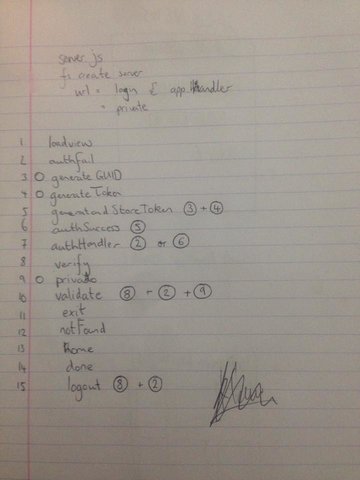 server.js
fs create server
url = login & app Handler
= private
1 loadview
2 authfail
3 O generate GUID
4 O generate Token
5 generateandStoreToken ③ + ④
6 authSuccess ⑤
7 authHandler ② or ⑥
8 verify
9 O privado
10 validate ⑧ + ② + ⑨
11 exit
12 notFound
13 home
14 done
15 logout ⑧ + ②